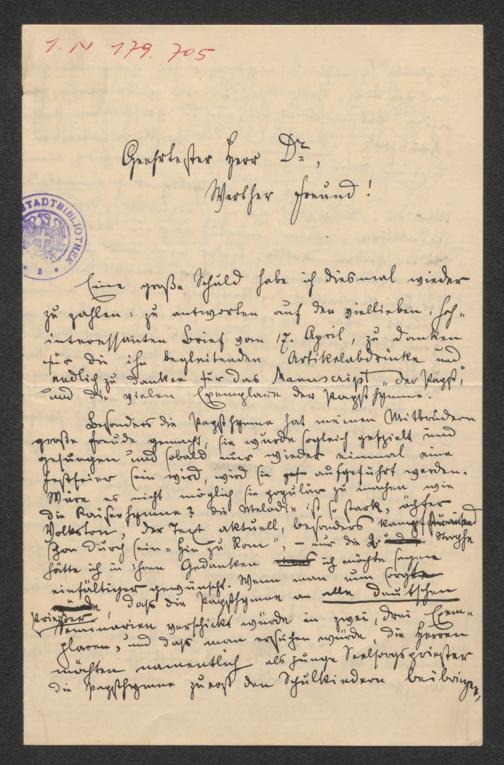 I. N. 179.705
Geehrtester Herr Dr.,
Werther Freund!
STADTBIBLIOTHEK
Eine große Schuld habe ich diesmal wieder
zu zahlen: zu antworten auf den viellieben, hoch-
interessanten Brief vom 17. April, zu danken
für die ihn begleitenden Artikelabdrücke und
endlich zu danken für das Manuscript "der Papst",
und die vielen Exemplare der Papsthymne.
Besonders die Papsthymne hat meinen Mitbrüdern
große Freude gemacht, sie wurde sogleich gespielt und
gesungen und sobald nur wieder einmal eine
Festfeier sein wird, wird sie aufgeführt werden.
Wäre es nicht möglich sie populär zu machen wie
die Kaiserhymne? Die Melodie ist so stark, echter
Volkston, der Text aktuell, besonders
schon durch sein "hin zu Rom", – nur die 2. Strophe
hätte ich in ihren Gedanken ich möchte sagen
einfältiger gewünscht. Wenn man nun
, daß die Papsthymne an alle deutschen
Priester Seminarien verschickt würde in zwei, drei Exem-
plaren, und daß man ersuchen würde, die Herren
möchten namentlich als junge Seelsorgspriester
die Papsthymne zuerst den Schulkindern beibringen,